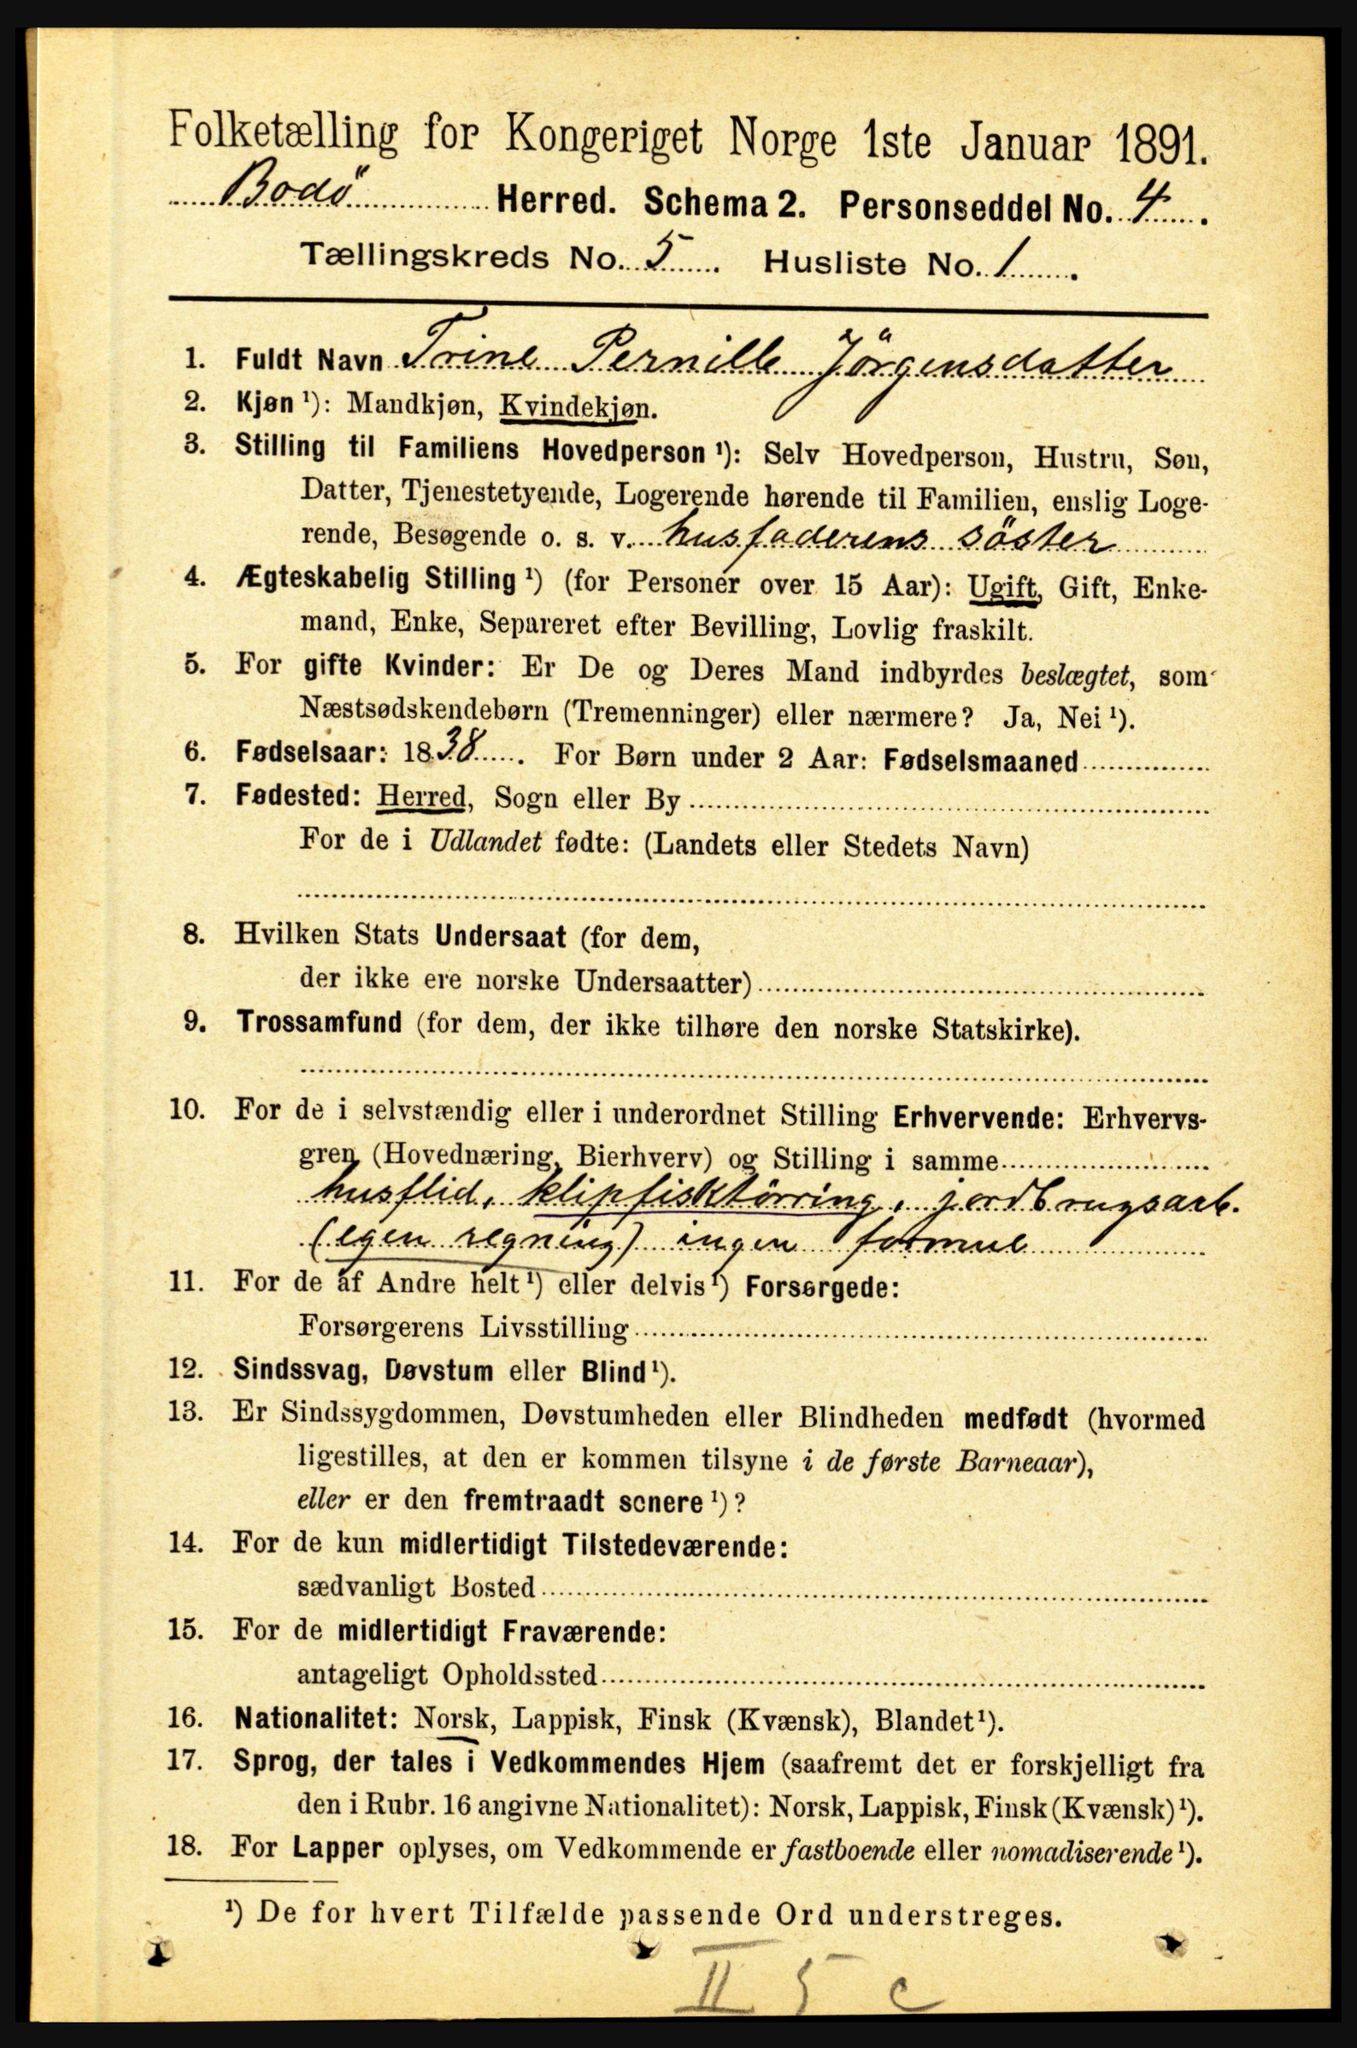 Folketælling for Kongeriget Norge 1ste Januar 1891.
Bodö Herred. Schema 2. Personseddel No. 4.
Tællingskreds No. 5. Husliste No. 1.
1. Fuldt Navn Trine Pernille Jörgensdatter
2. Kjøn ¹): Mandkjøn, Kvindekjøn.
3. Stilling til Familiens Hovedperson ¹): Selv Hovedperson, Hustru, Søn,
Datter, Tjenestetyende, Logerende hørende til Familien, enslig Loge-
rende, Besøgende o. s. v. husfaderens söster
4. Ægteskabelig Stilling ¹) (for Personer over 15 Aar): Ugift, Gift, Enke-
mand, Enke, Separeret efter Bevilling, Lovlig fraskilt.
5. For gifte Kvinder: Er De og Deres Mand indbyrdes beslægtet, som
Næstsødskendebørn (Tremenninger) eller nærmere? Ja, Nei ¹).
6. Fødselsaar: 1838. For Børn under 2 Aar: Fødselsmaaned
7. Fødested: Herred, Sogn eller By
For de i Udlandet fødte: (Landets eller Stedets Navn)
8. Hvilken Stats Undersaat (for dem,
der ikke ere norske Undersaatter)
9. Trossamfund (for dem, der ikke tilhøre den norske Statskirke).
10. For de i selvstændig eller i underordnet Stilling Erhvervende: Erhvervs-
gren (Hovednæring, Bierhverv) og Stilling i samme
husflid, klipfisktörring, jordbrugsarb.
(egen regning) ingen formue
11. For de af Andre helt ¹) eller delvis ¹) Forsørgede:
Forsørgerens Livsstilling
12. Sindssvag, Døvstum eller Blind ¹).
13. Er Sindssygdommen, Døvstumheden eller Blindheden medfødt (hvormed
ligestilles, at den er kommen tilsyne i de første Barneaar),
eller er den fremtraadt senere ¹)?
14. For de kun midlertidigt Tilstedeværende:
sædvanligt Bosted
15. For de midlertidigt Fraværende:
antageligt Opholdssted
16. Nationalitet: Norsk, Lappisk, Finsk (Kvænsk), Blandet ¹).
17. Sprog, der tales i Vedkommendes Hjem (saafremt det er forskjelligt fra
den i Rubr. 16 angivne Nationalitet): Norsk, Lappisk, Finsk (Kvænsk) ¹).
18. For Lapper oplyses, om Vedkommende er fastboende eller nomadiserende ¹).
¹) De for hvert Tilfælde passende Ord understreges.
II 5 c